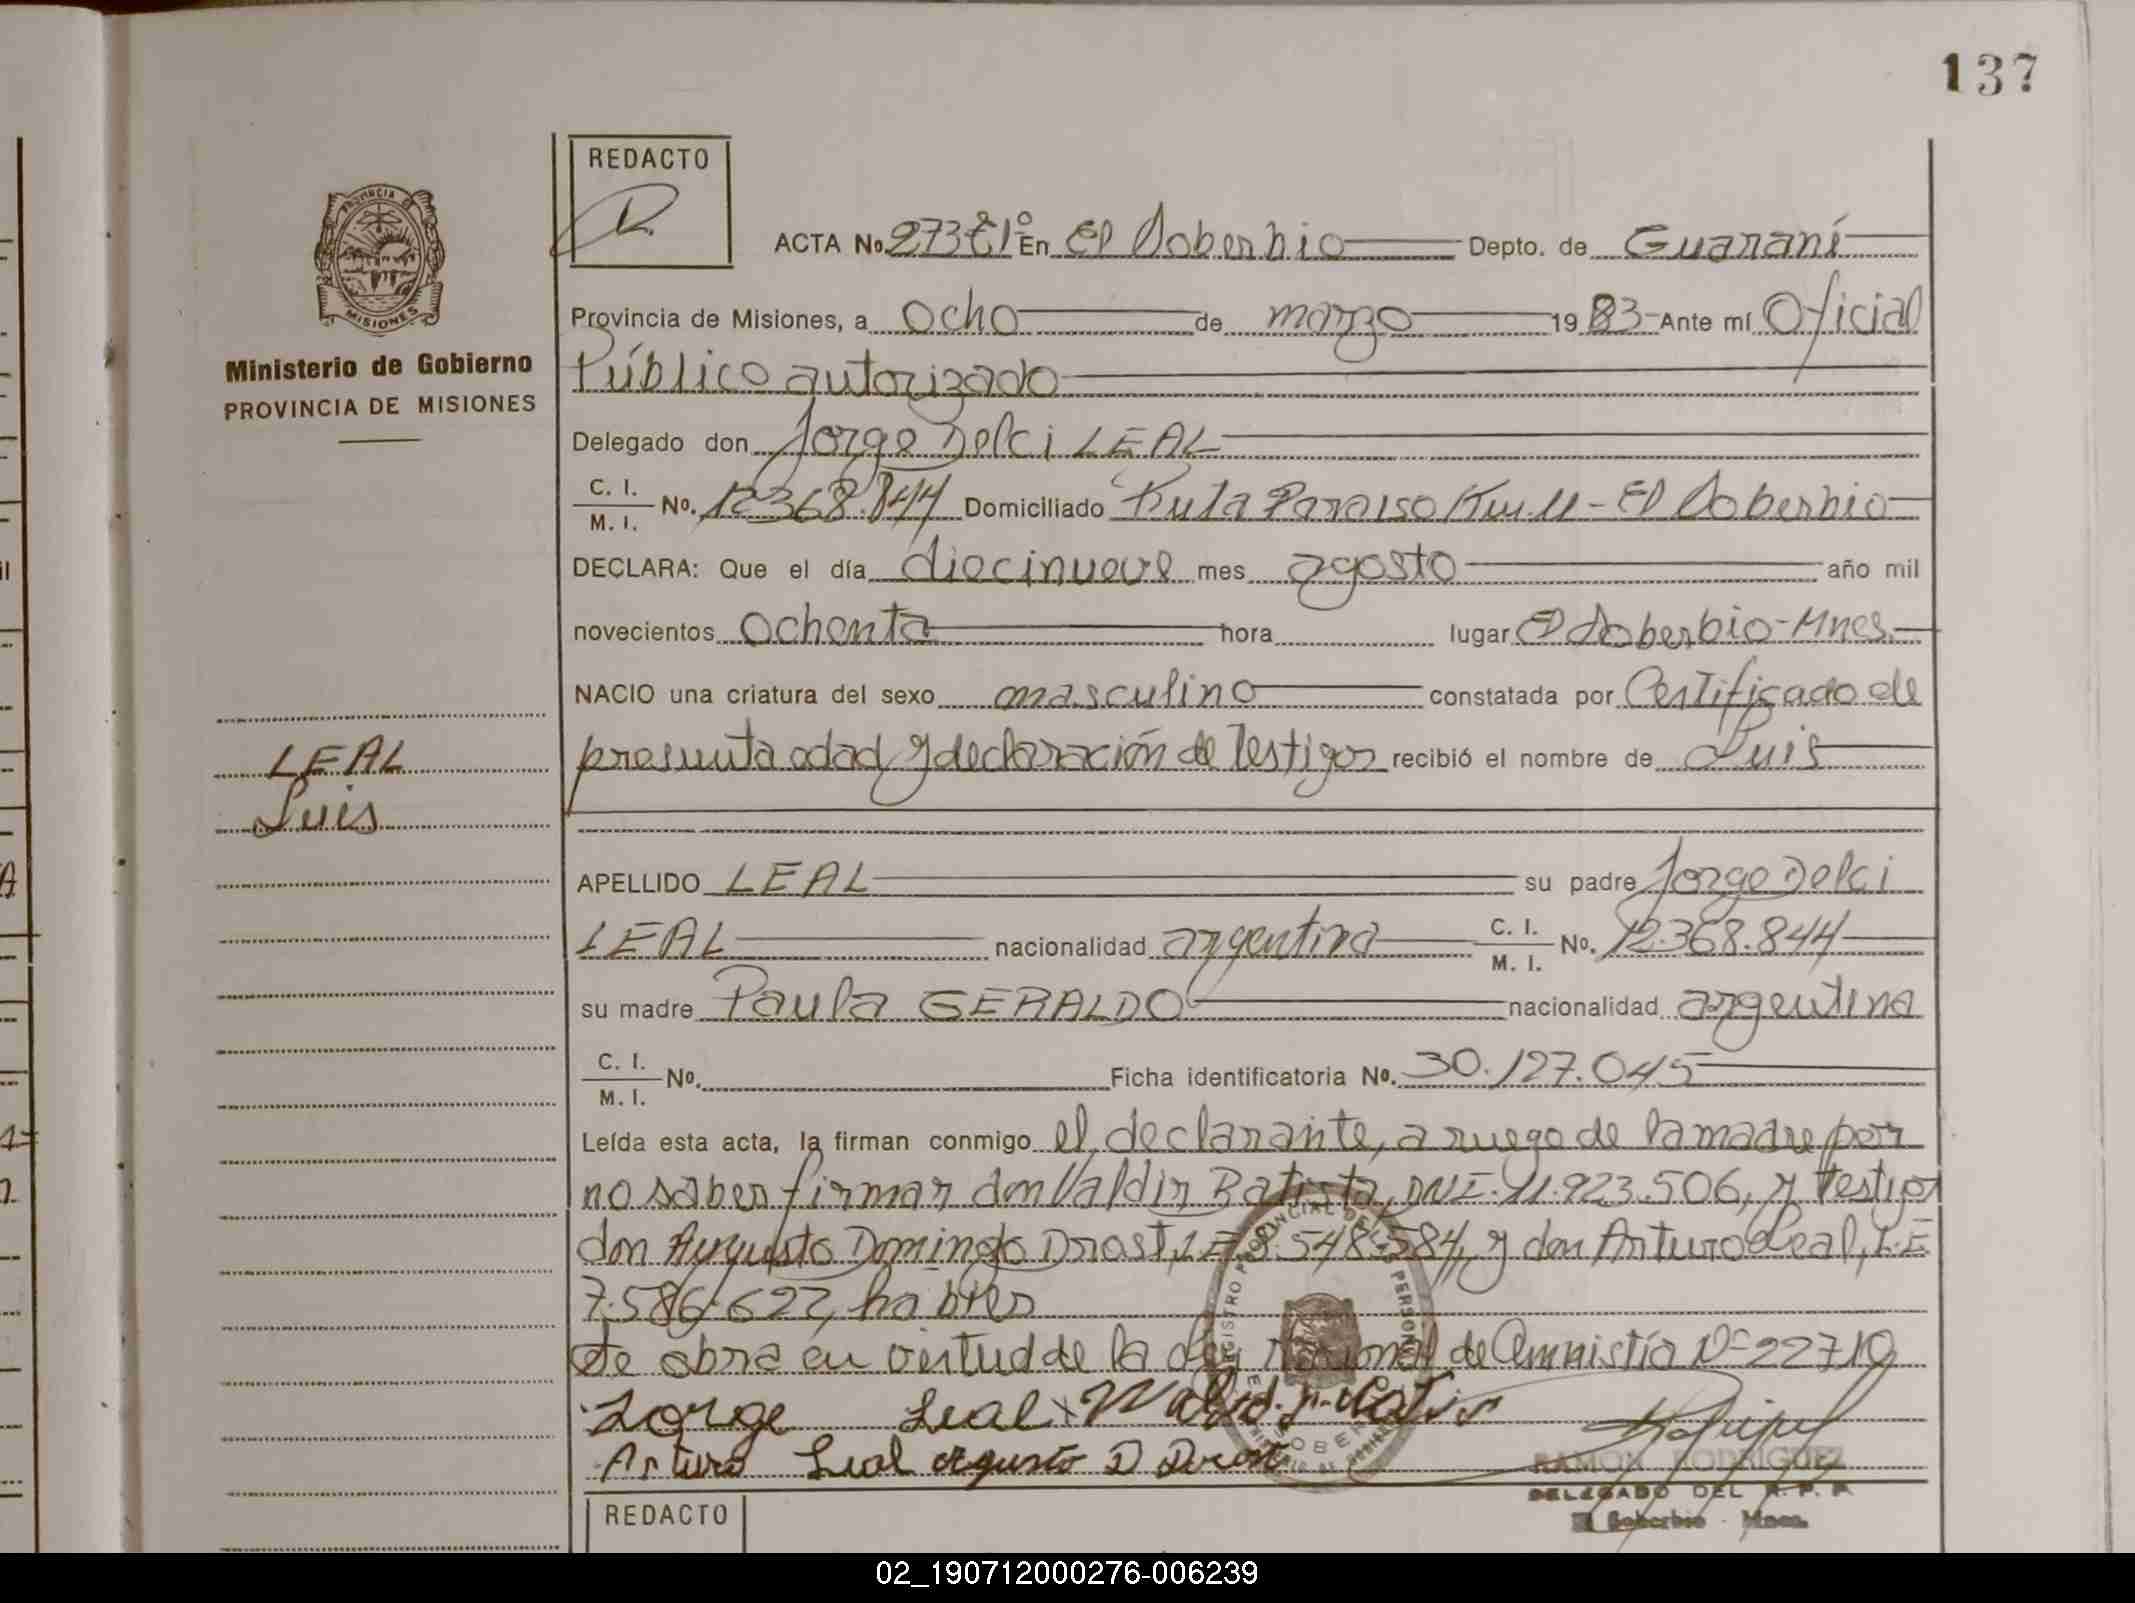 137
REDACTO
ACTA No. 273 t1° En El Soberbio Depto. de Guaraní
Provincia de Misiones, a ocho de marzo 1983 Ante mí Oficial
Público autorizado
Ministerio de Gobierno
PROVINCIA DE MISIONES
Delegado don Jorge Delci LEAL
C. I.
M. I. No. 12.368.844 Domiciliado Ruta Paraiso Km. 11 - El Soberbio
DECLARA: Que el día diecinueve mes agosto año mil
novecientos ochenta hora lugar El Soberbio - Mnes.
NACIO una criatura del sexo masculino constatada por Certificado de
presunta edad y declaración de testigos recibió el nombre de Luis
LEAL
Luis
APELLIDO LEAL su padre Jorge Delci
LEAL nacionalidad argentina C. I. M. I. No. 12.368.844
su madre Paula GERALDO nacionalidad argentina
C. I. M. I. No. Ficha identificatoria No. 30.127.045
Leída esta acta, la firman conmigo el declarante, a ruego de la madre por
no saber firmar don Valdir Batista, DNI. 11.923.506, y testigos
don Augusto Domingo Drost, L.E 8.548.584, y don Arturo Leal, L.E
7.586.622, habiles
Se obra en virtud de la Ley Nacional de Amnistía Nº 22710
Jorge Leal
Arturo Leal Agusto D Drost
RAMON RODRIGUEZ
DELEGADO DEL R. P. P.
El Soberbio - Mnes.
REDACTO
02_190712000276-006239